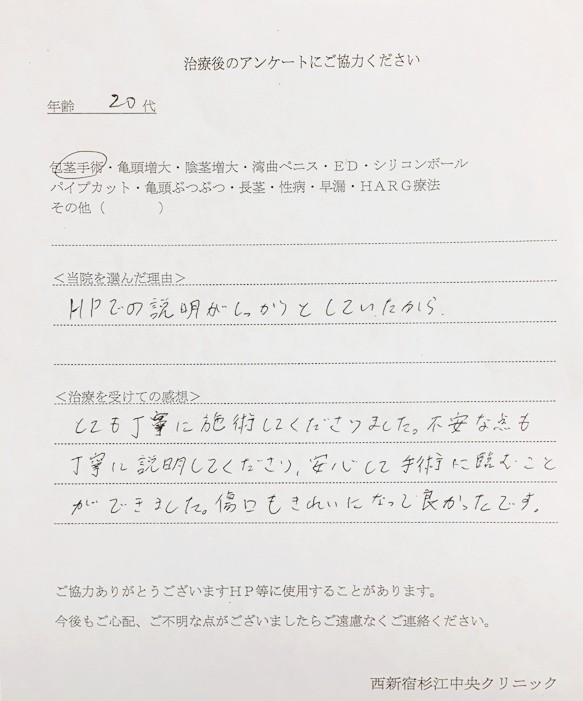 治療後のアンケートにご協力ください
年齢 20 代
包茎手術・亀頭増大・陰茎増大・湾曲ペニス・ED・シリコンボール
パイプカット・亀頭ぶつぶつ・長茎・性病・早漏・HARG療法
その他（ ）
＜当院を選んだ理由＞
HPでの説明がしっかりとしていたから.
＜治療を受けての感想＞
とても丁寧に施術してくださりました。不安な点も
丁寧に説明してくださり、安心して手術に臨むこと
ができました。傷口もきれいになって良かったです。
ご協力ありがとうございますHP等に使用することがあります。
今後もご心配、ご不明な点がございましたらご遠慮なくご連絡ください。
西新宿杉江中央クリニック